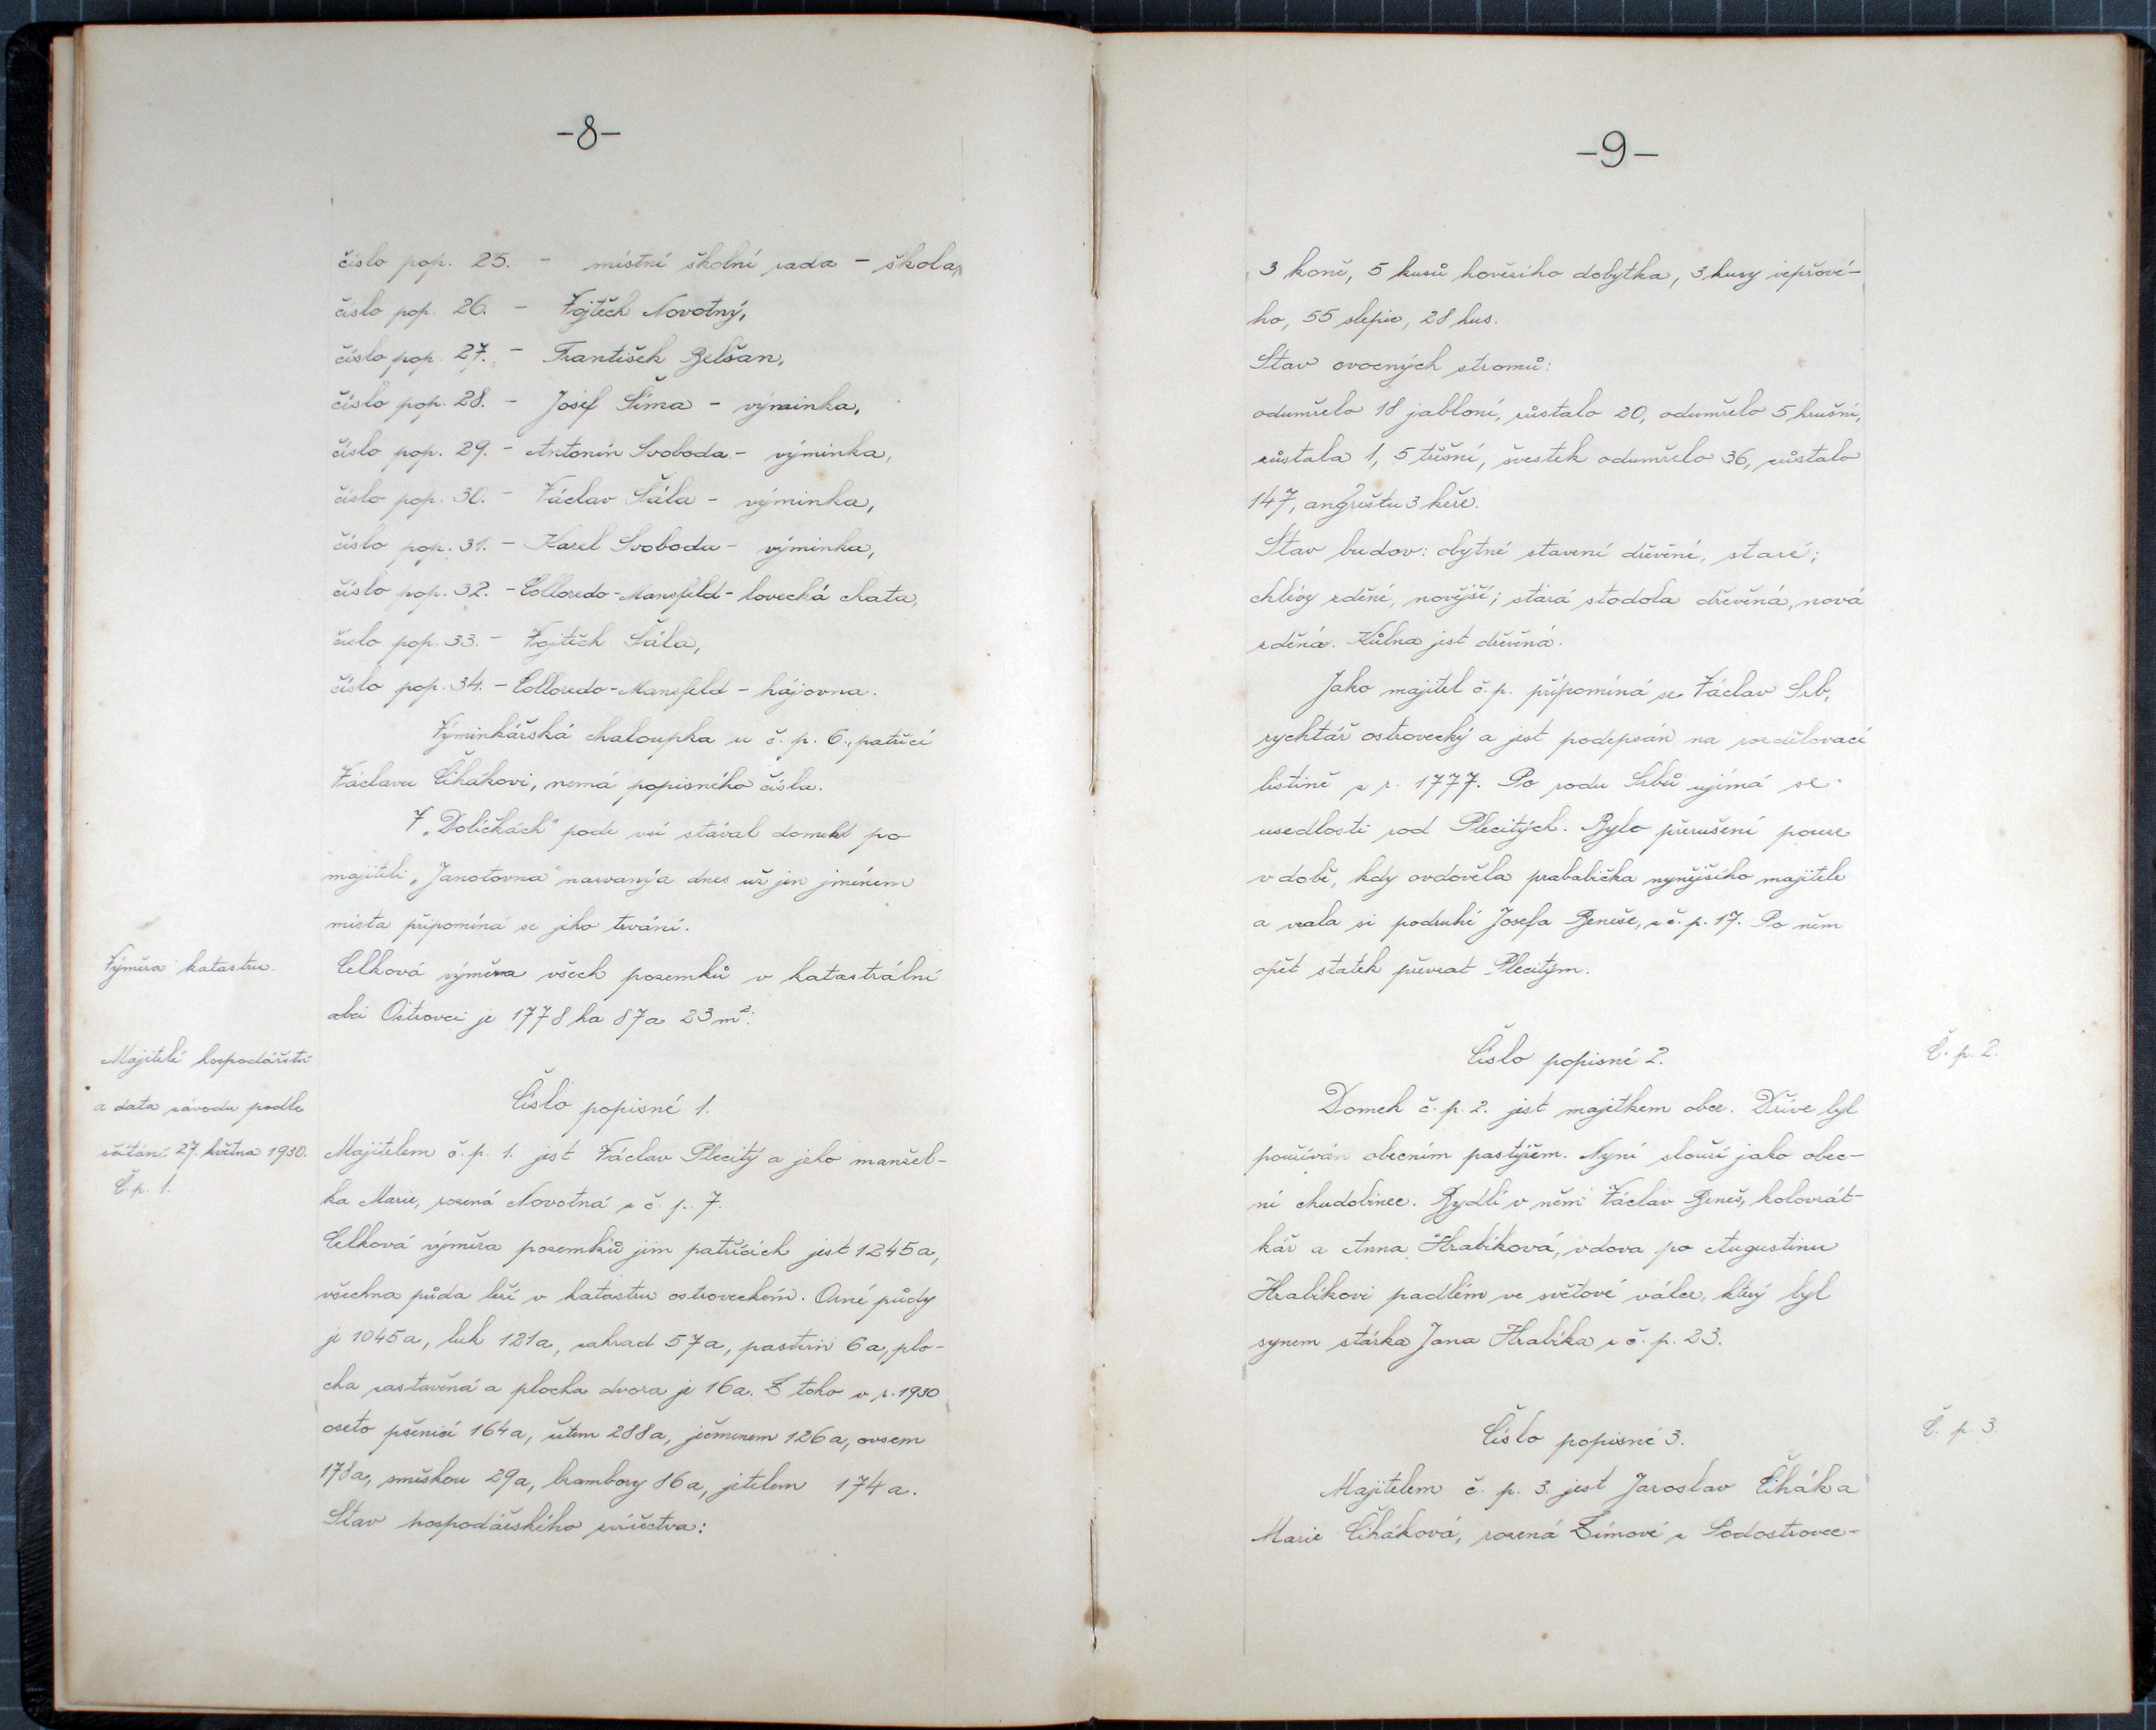 -8-
číslo pop. 25. - místní školní rada - škola,
číslo pop. 26. - Vojtěch Novotný,
číslo pop. 27. - František Belšan,
číslo pop. 28. - Josef Šíma - výminka,
číslo pop. 29. - Antonín Svoboda - výminka,
číslo pop. 30. - Václav Šála - výminka,
číslo pop. 31. - Karel Svoboda - výminka,
číslo pop. 32. - Colloredo-Mansfeld - lovecká chata,
číslo pop. 33. - Vojtěch Šála,
číslo pop. 34. - Colloredo-Mansfeld - hájovna.
Výminkářská chaloupka u č. p. 6., patřící
Václavu Čihákovi, nemá popisného čísla.
V „Dolíčkách" pode vsí stával domek po
majiteli „Janotovna" nazvaný a dnes už jen jménem
místa připomíná se jeho trvání.
Výměra katastru.
Celková výměra všech pozemků v katastrální
obci Ostrovci je 1778 ha 87a 23 m².
Majitelé hospodářství
a data závodu podle
sčítání 27. května 1930.
Č. p. 1.
Číslo popisné 1.
Majitelem č. p. 1. jest Václav Plecitý a jeho manžel-
ka Marie, rozená Novotná z č. p. 7.
Celková výměra pozemků jim patřících jest 1245 a,
všechna půda leží v katastru ostroveckém. Orné půdy
je 1045 a, luk 121 a, zahrad 57 a, pastvin 6 a, plo-
cha zastavěná a plocha dvora je 16a. Z toho v r. 1930
oseto pšenicí 164 a, žitem 288 a, ječmenem 126 a, ovsem
178 a, směskou 29 a, brambory 86 a, jetelem 174 a.
Stav hospodářského zvířectva:
-9-
3 koně, 5 kusů hovězího dobytka, 3 kusy vepřové-
ho, 55 slepic, 28 hus.
Stav ovocných stromů:
odumřelo 18 jabloní, zůstalo 20, odumřelo 5 hrušní,
zůstala 1, 5 třešní, švestek odumřelo 36, zůstalo
147, angreštu 3 keře.
Stav budov: obytné stavení dřevěné, staré;
chlévy zděné, novější; stará stodola dřevěná, nová
zděná. Kůlna jest dřevěná.
Jako majitel č. p. připomíná se Václav Srb,
rychtář ostrovecký a jest podepsán na rozdělovací
listině z r. 1777. Po rodu Srbů ujímá se
usedlosti rod Plecitých. Bylo přerušení pouze
v době, kdy ovdověla prababička nynějšího majitele
a vzala si podruhé Josefa Beneše, z č. p. 17. Po něm
opět statek převzat Plecitým.
Číslo popisné 2.
Č. p. 2.
Domek č. p. 2. jest majetkem obce. Dříve byl
používán obecním pastýřem. Nyní slouží jako obec-
ní chudobinec. Bydlí v něm Václav Beneš, kolovrát-
kář a Anna Hrabíková, vdova po Augustinu
Hrabíkovi padlém ve světové válce, který byl
synem stárka Jana Hrabíka z č. p. 23.
Číslo popisné 3.
Č. p. 3.
Majitelem č. p. 3. jest Jaroslav Čihák a
Marie Čiháková, rozená Zímové z Podostrovec-